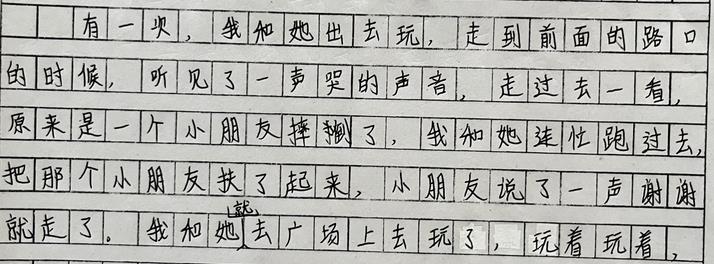 有一次，我和她出去玩，走到前面的路口
的时候，听见了一声哭的声音，走过去一看，
原来是一个小朋友摔倒了，我和她连忙跑过去，
把那个小朋友扶了起来，小朋友说了一声谢谢
就走了。我和她就去广场上去玩了，玩着玩着，